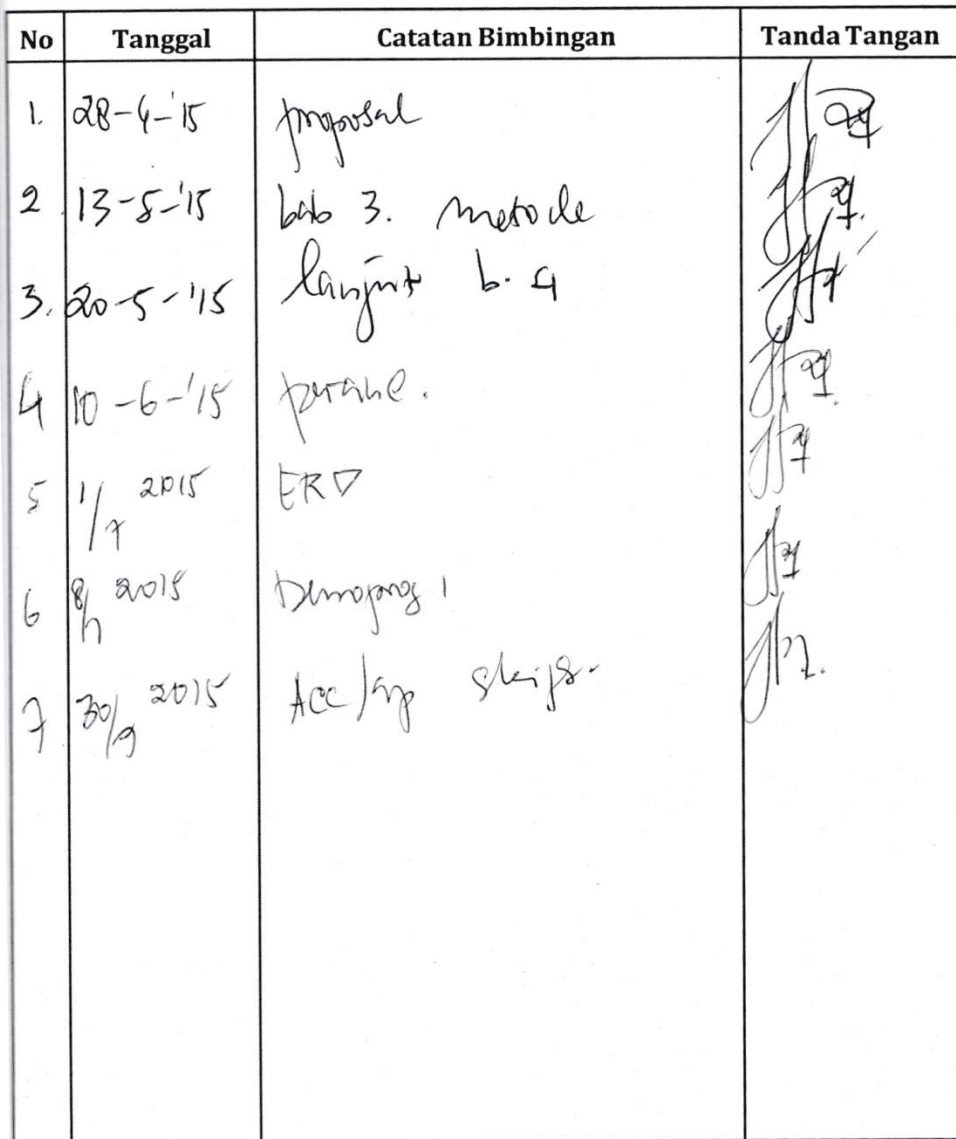 No Tanggal Catatan Bimbingan Tanda Tangan
1. 28-4-'15 proposal
2. 13-5-'15 bab 3. metode
3. 20-5-'15 lanjut b. 4
4 10-6-'15
5 1/7 2015 ERD
6 8/7 2015 Demoprog 1
7 30/9 2015 Acc